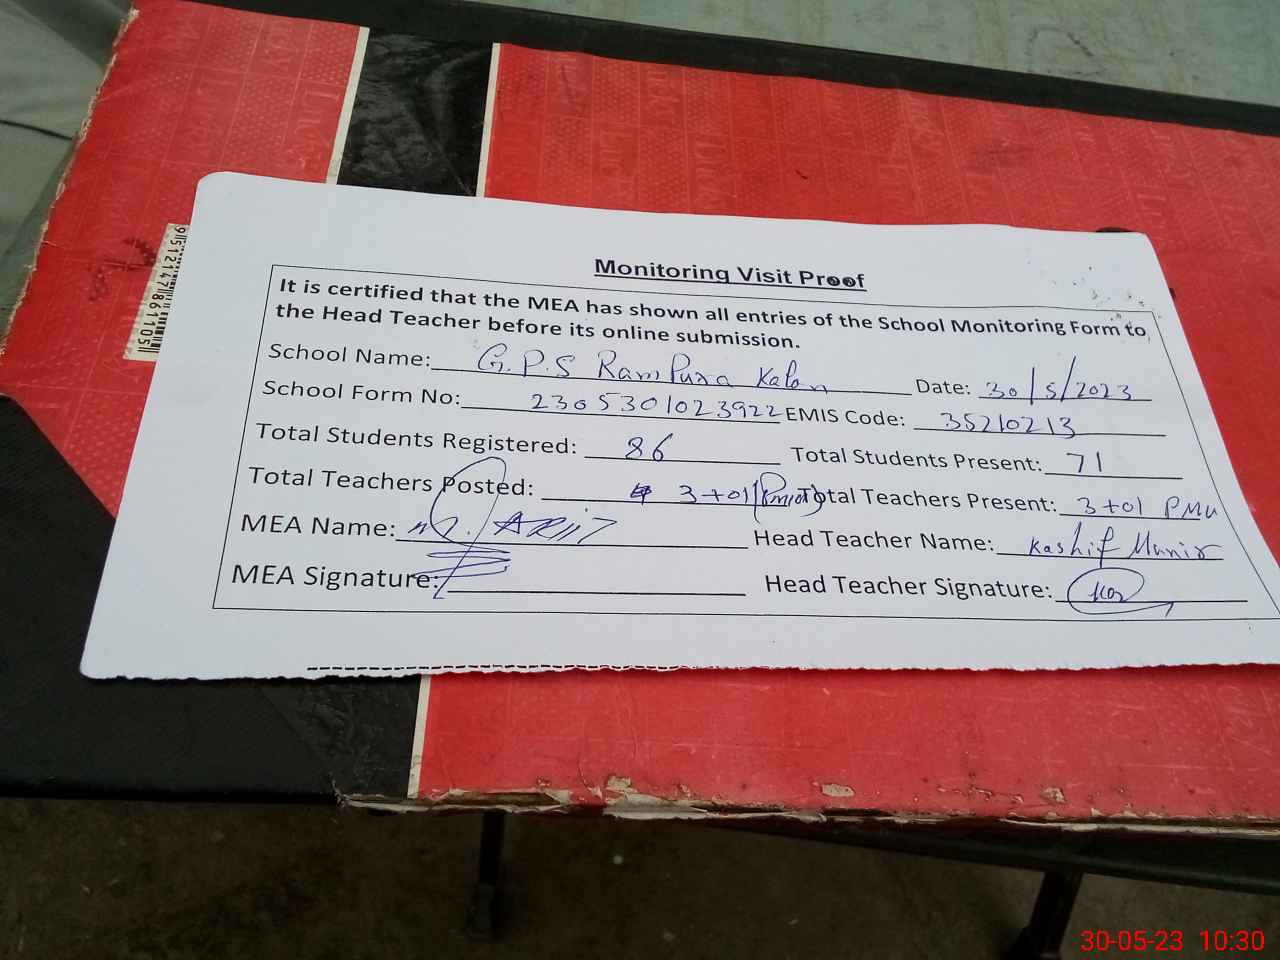 Monitoring Visit Proof
It is certified that the MEA has shown all entries of the School Monitoring Form to
the Head Teacher before its online submission.
School Name: G.P.S Rampura Kalan Date: 30/5/2023
School Form No: 2305301023922 EMIS Code: 35210213
Total Students Registered: 86 Total Students Present: 71
Total Teachers Posted: 3+01 Total Teachers Present: 3+01 PMU
MEA Name: Head Teacher Name: Kashif Munir
MEA Signature: Head Teacher Signature:
9512147861105
30-05-23 10:30